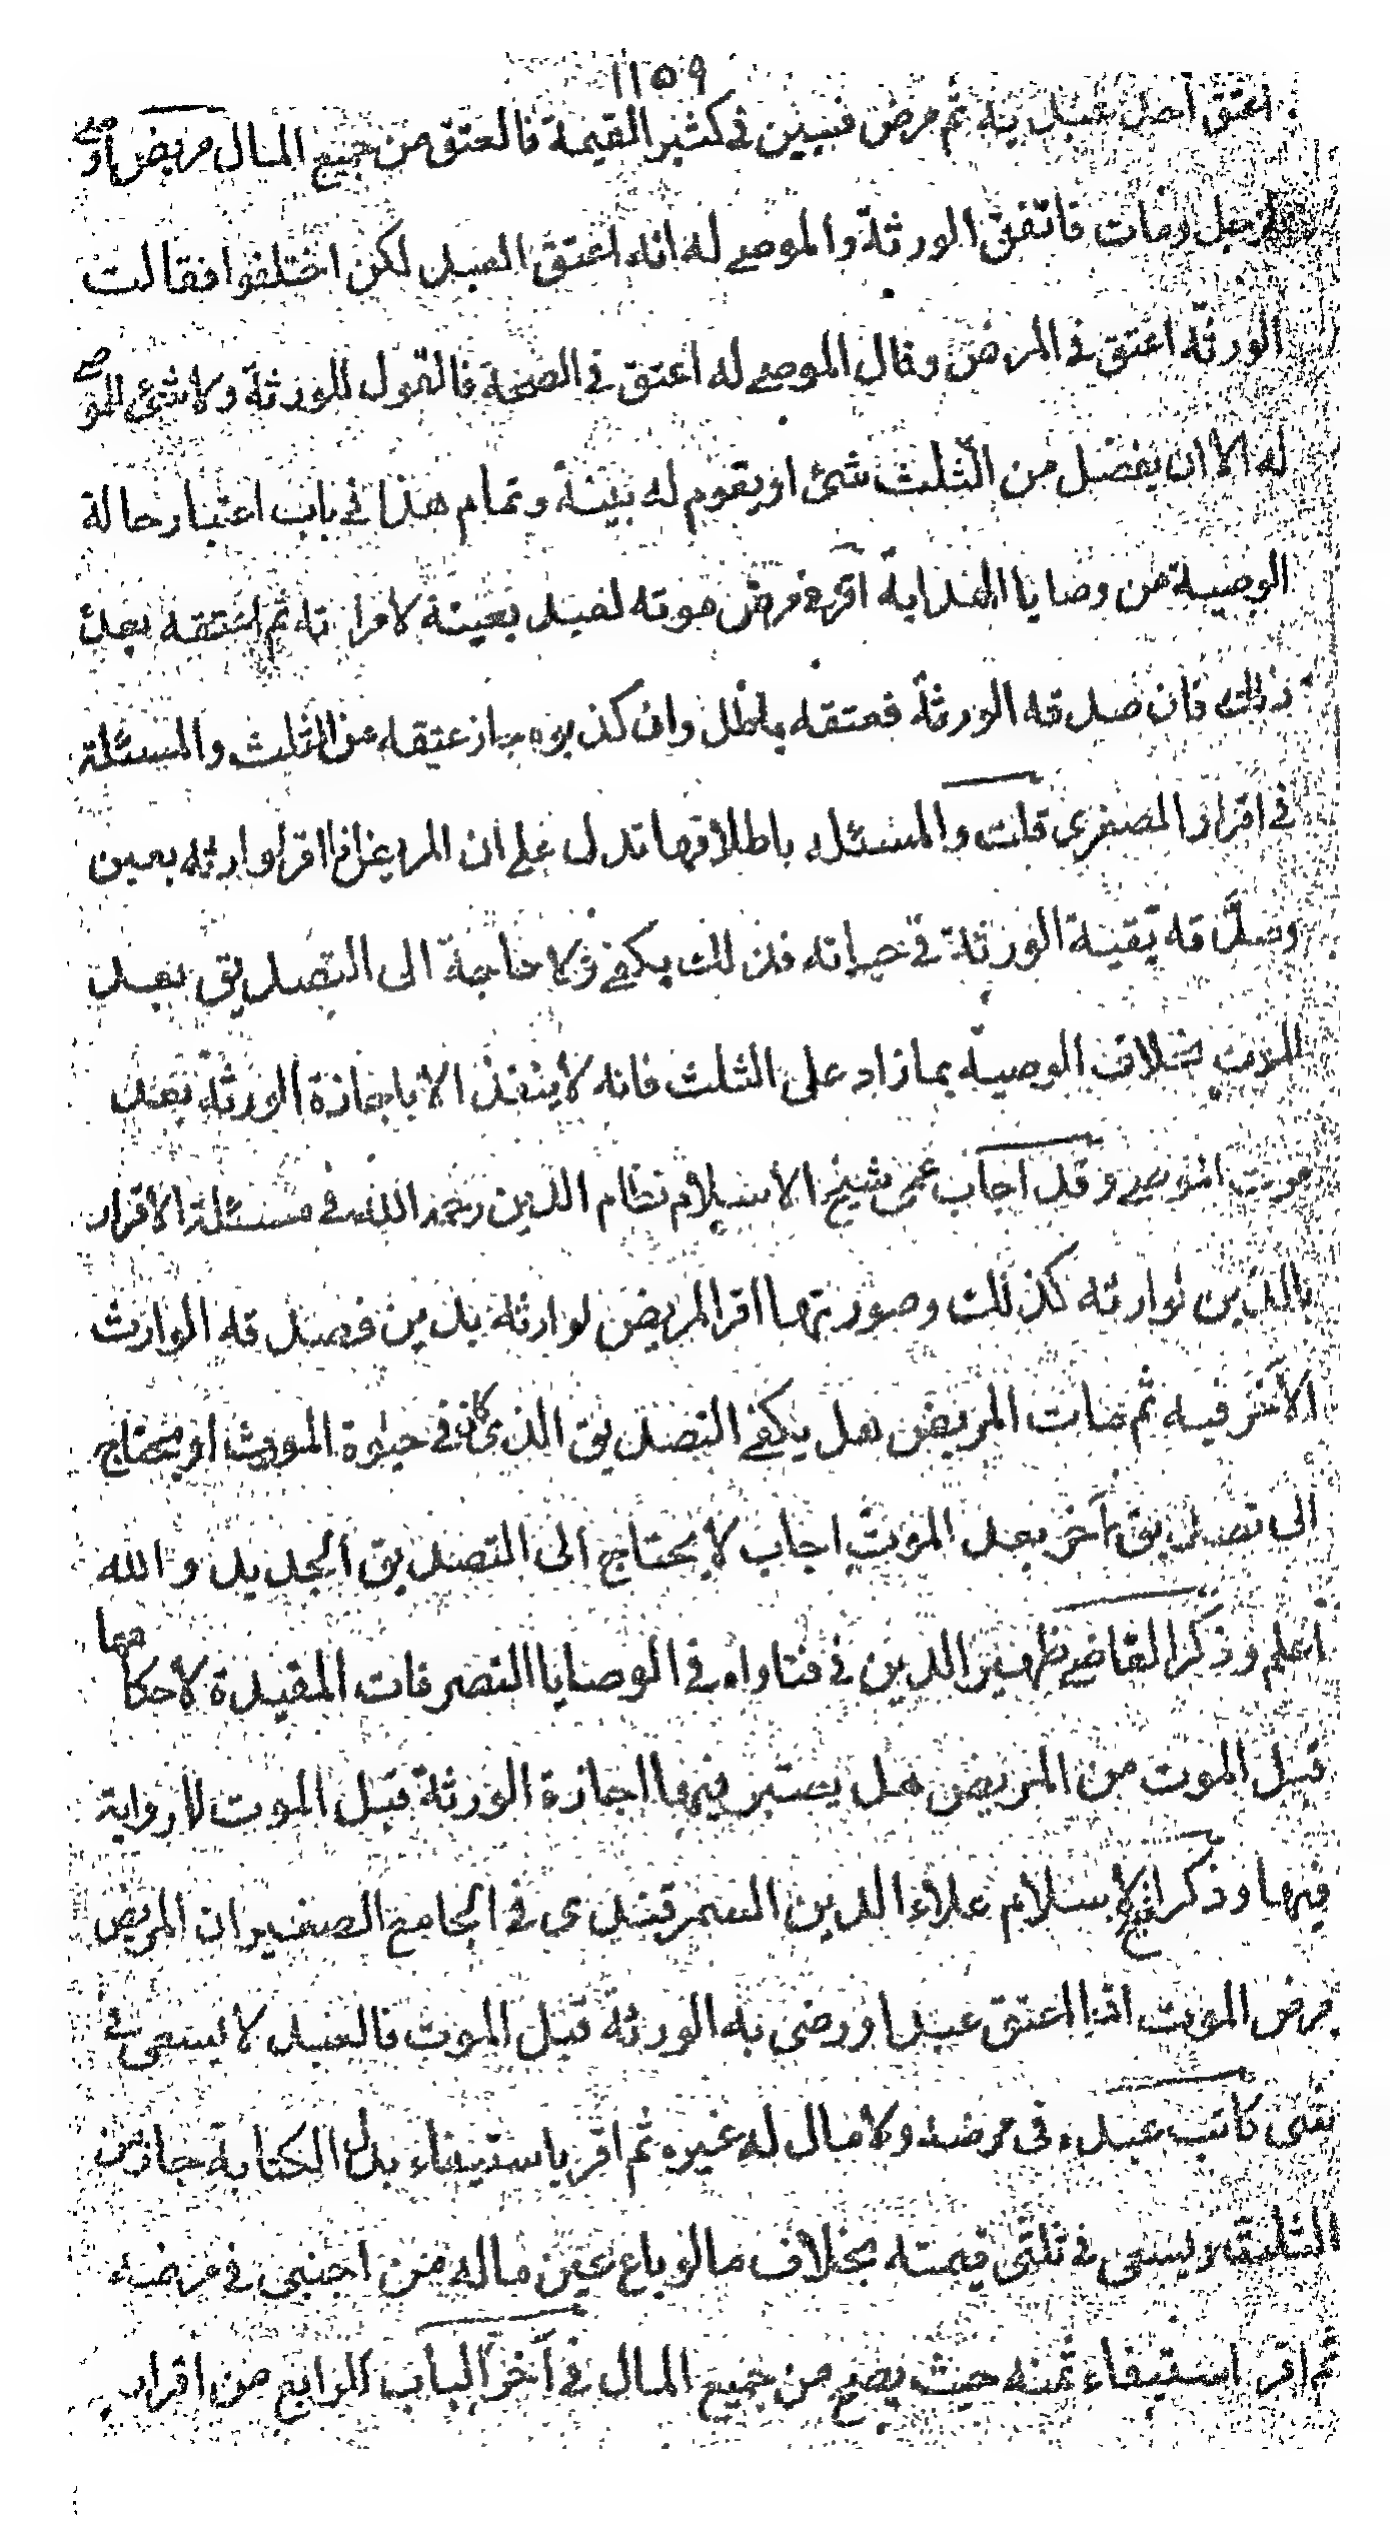 ١١٥٩
اعتق احد عبديه ثم مرض فبين في كثير القيمة فالعتق من جميع المال مريض اوصى
لرجل ومات فاتفق الورثة والموصى له انه اعتق العبد لكن اختلفوا فقالت
الورثة اعتق في المرض وقال الموصى له اعتق في الصحة فالقول للورثة ولا شئ للموصى
له الا ان يفضل من الثلث شئ او يقوم له بينة وتمام هذا في باب اعتبار حالة
الوصية من وصايا الهداية اقر في مرض موته لعبد بعينه لامراته ثم اعتقه بعد
ذلك فان صدقه الورثة فعتقه باطل وان كذبوه جاز عتقه من الثلث والمسئلة
في اقرار الصغرى قلت والمسئلة باطلاقها تدل على ان المريض اذا اقر لوارثه بعين
وصدقه بقية الورثة في حياته فذلك يكفى ولا حاجة الى التصديق بعد
الموت بخلاف الوصية بما زاد على الثلث فانه لا ينفذ الا باجازة الورثة بعد
موت الموصى وقد اجاب عمى شيخ الاسلام نظام الدين رحمه الله في مسئلة الاقرار
بالدين لوارثه كذلك وصورتها اقر المريض لوارثه بدين فصدقه الوارث
الاخر فيه ثم مات المريض هل يكفى التصديق الذى كان في حيوة المورث او يحتاج
الى تصديق آخر بعد الموت اجاب لا يحتاج الى التصديق الجديد والله
اعلم وذكر القاضى ظهير الدين في فتاواه في الوصايا التصرفات المفيدة لاحكامها
قبل الموت من المريض هل يعتبر فيها اجازة الورثة قبل الموت لا رواية
فيها وذكر شيخ الاسلام علاء الدين السمرقندى في الجامع الصغير ان المريض
مرض الموت اذا اعتق عبدا ورضى به الورثة قبل الموت فالعبد لا يسعى في
شئ كاتب عبده في مرضه ولا مال له غيره ثم اقر باستيفاء بدل الكتابة جاز من
الثلث ويسعى في ثلثى قيمته بخلاف ما لو باع عين ماله من اجنبى في مرضه
ثم اقر استيفاء ثمنه حيث يصح من جميع المال في آخر الباب الرابع من اقرار